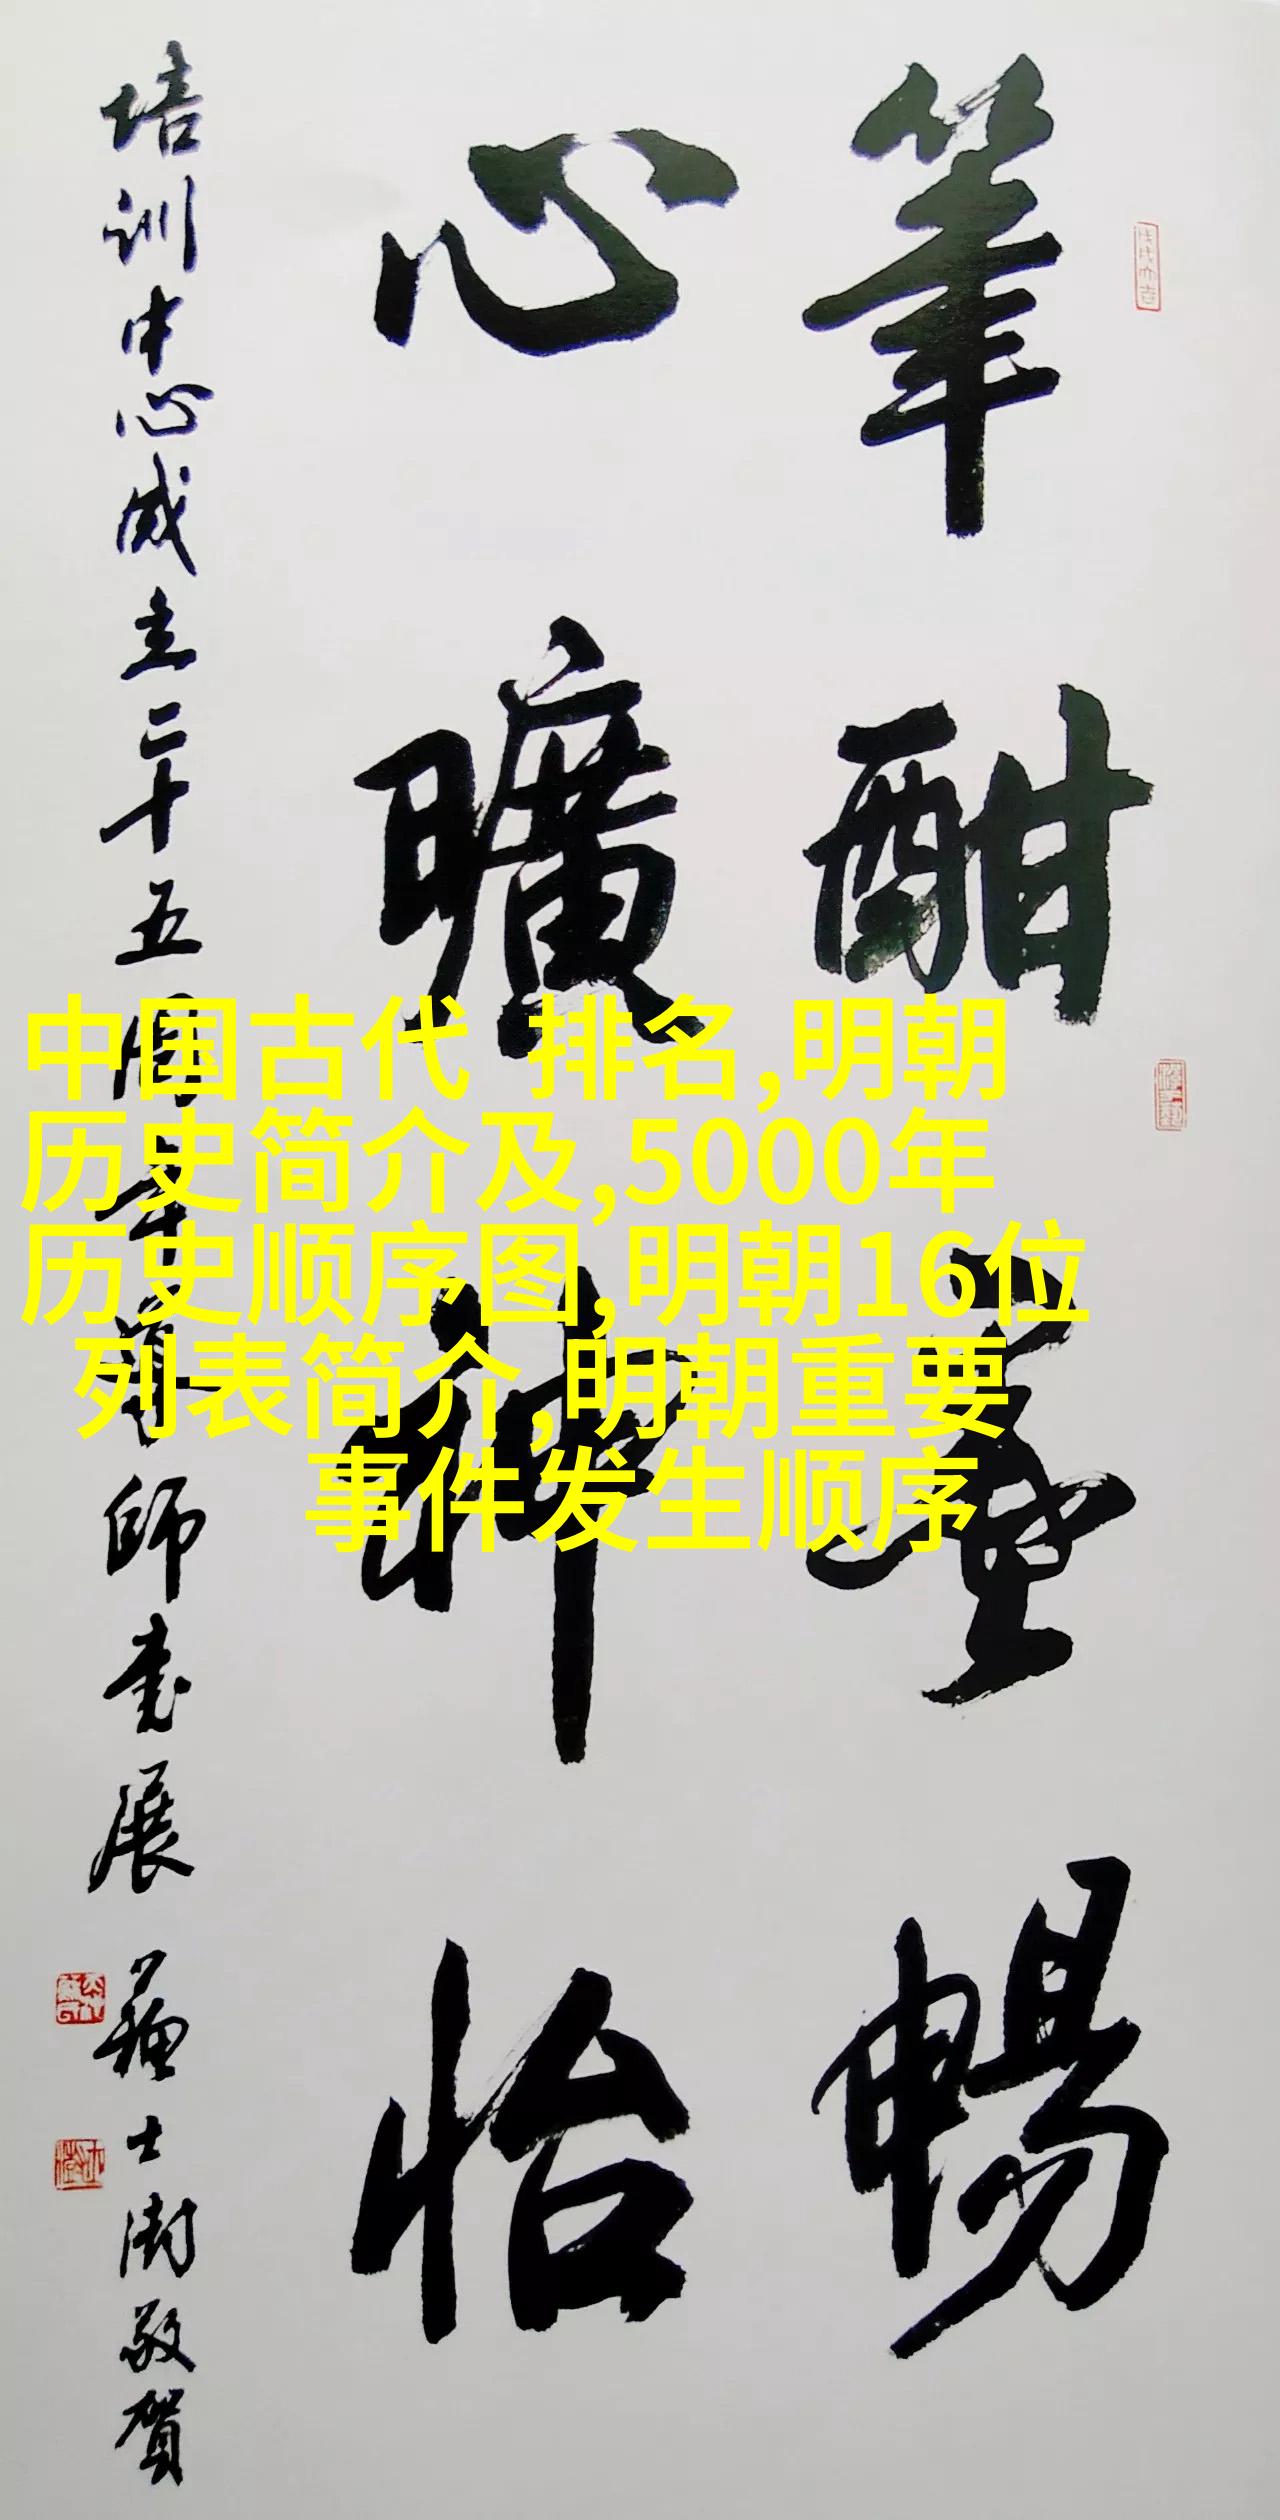 筆酣墨暢
心曠神怡
培训中心成立二十五周年導師書展 蘇士澍敬賀
中国古代 排名,明朝
历史简介及,5000年
历史顺序图,明朝16位
列表简介,明朝重要
事件发生顺序